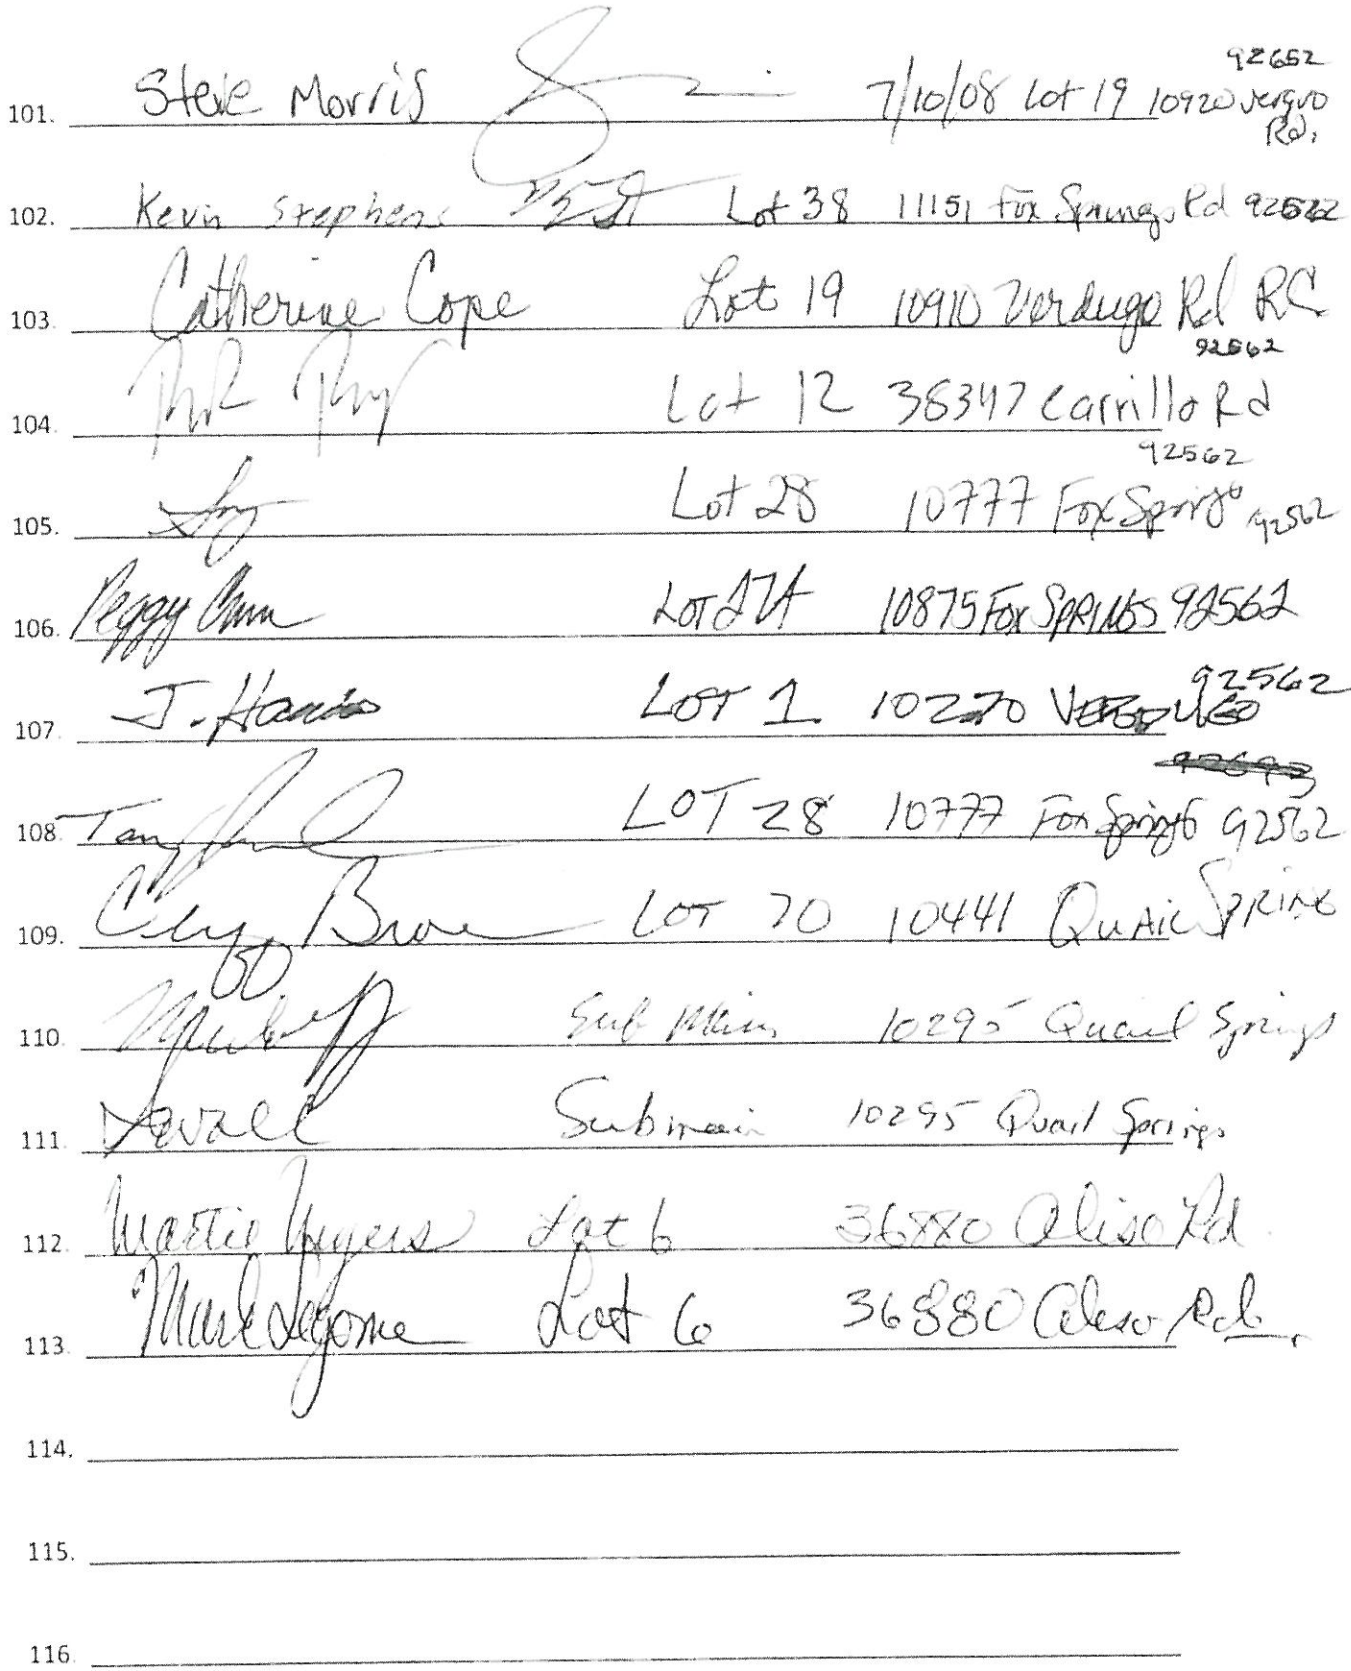 92652
101. Steve Morris 7/10/08 Lot 19 10920 Vergvo
Rd.
102. Kevin Stephens Lot 38 11151 Fox Springs Rd 92562
103. Catherine Cope Lot 19 10910 Verdugo Rd RC
92562
104. Lot 12 38347 Carrillo Rd
92562
105. Lot 28 10777 Fox Springs 92562
106. Peggy LOT 10875 FOX SPRINGS 92562
92562
107. J. Harris LOT 1 10270
108. LOT 28 10777 Fox Springs 92562
109. LOT 70 10441 QUAIL SPRING
110. Sub Main 10295 Quail Springs
111. Submain 10295 Quail Springs
112. Martie Lot 6 36880 Aliso Rd
113. Mark Lot 6 36880 Aliso Rd.
114.
115.
116.